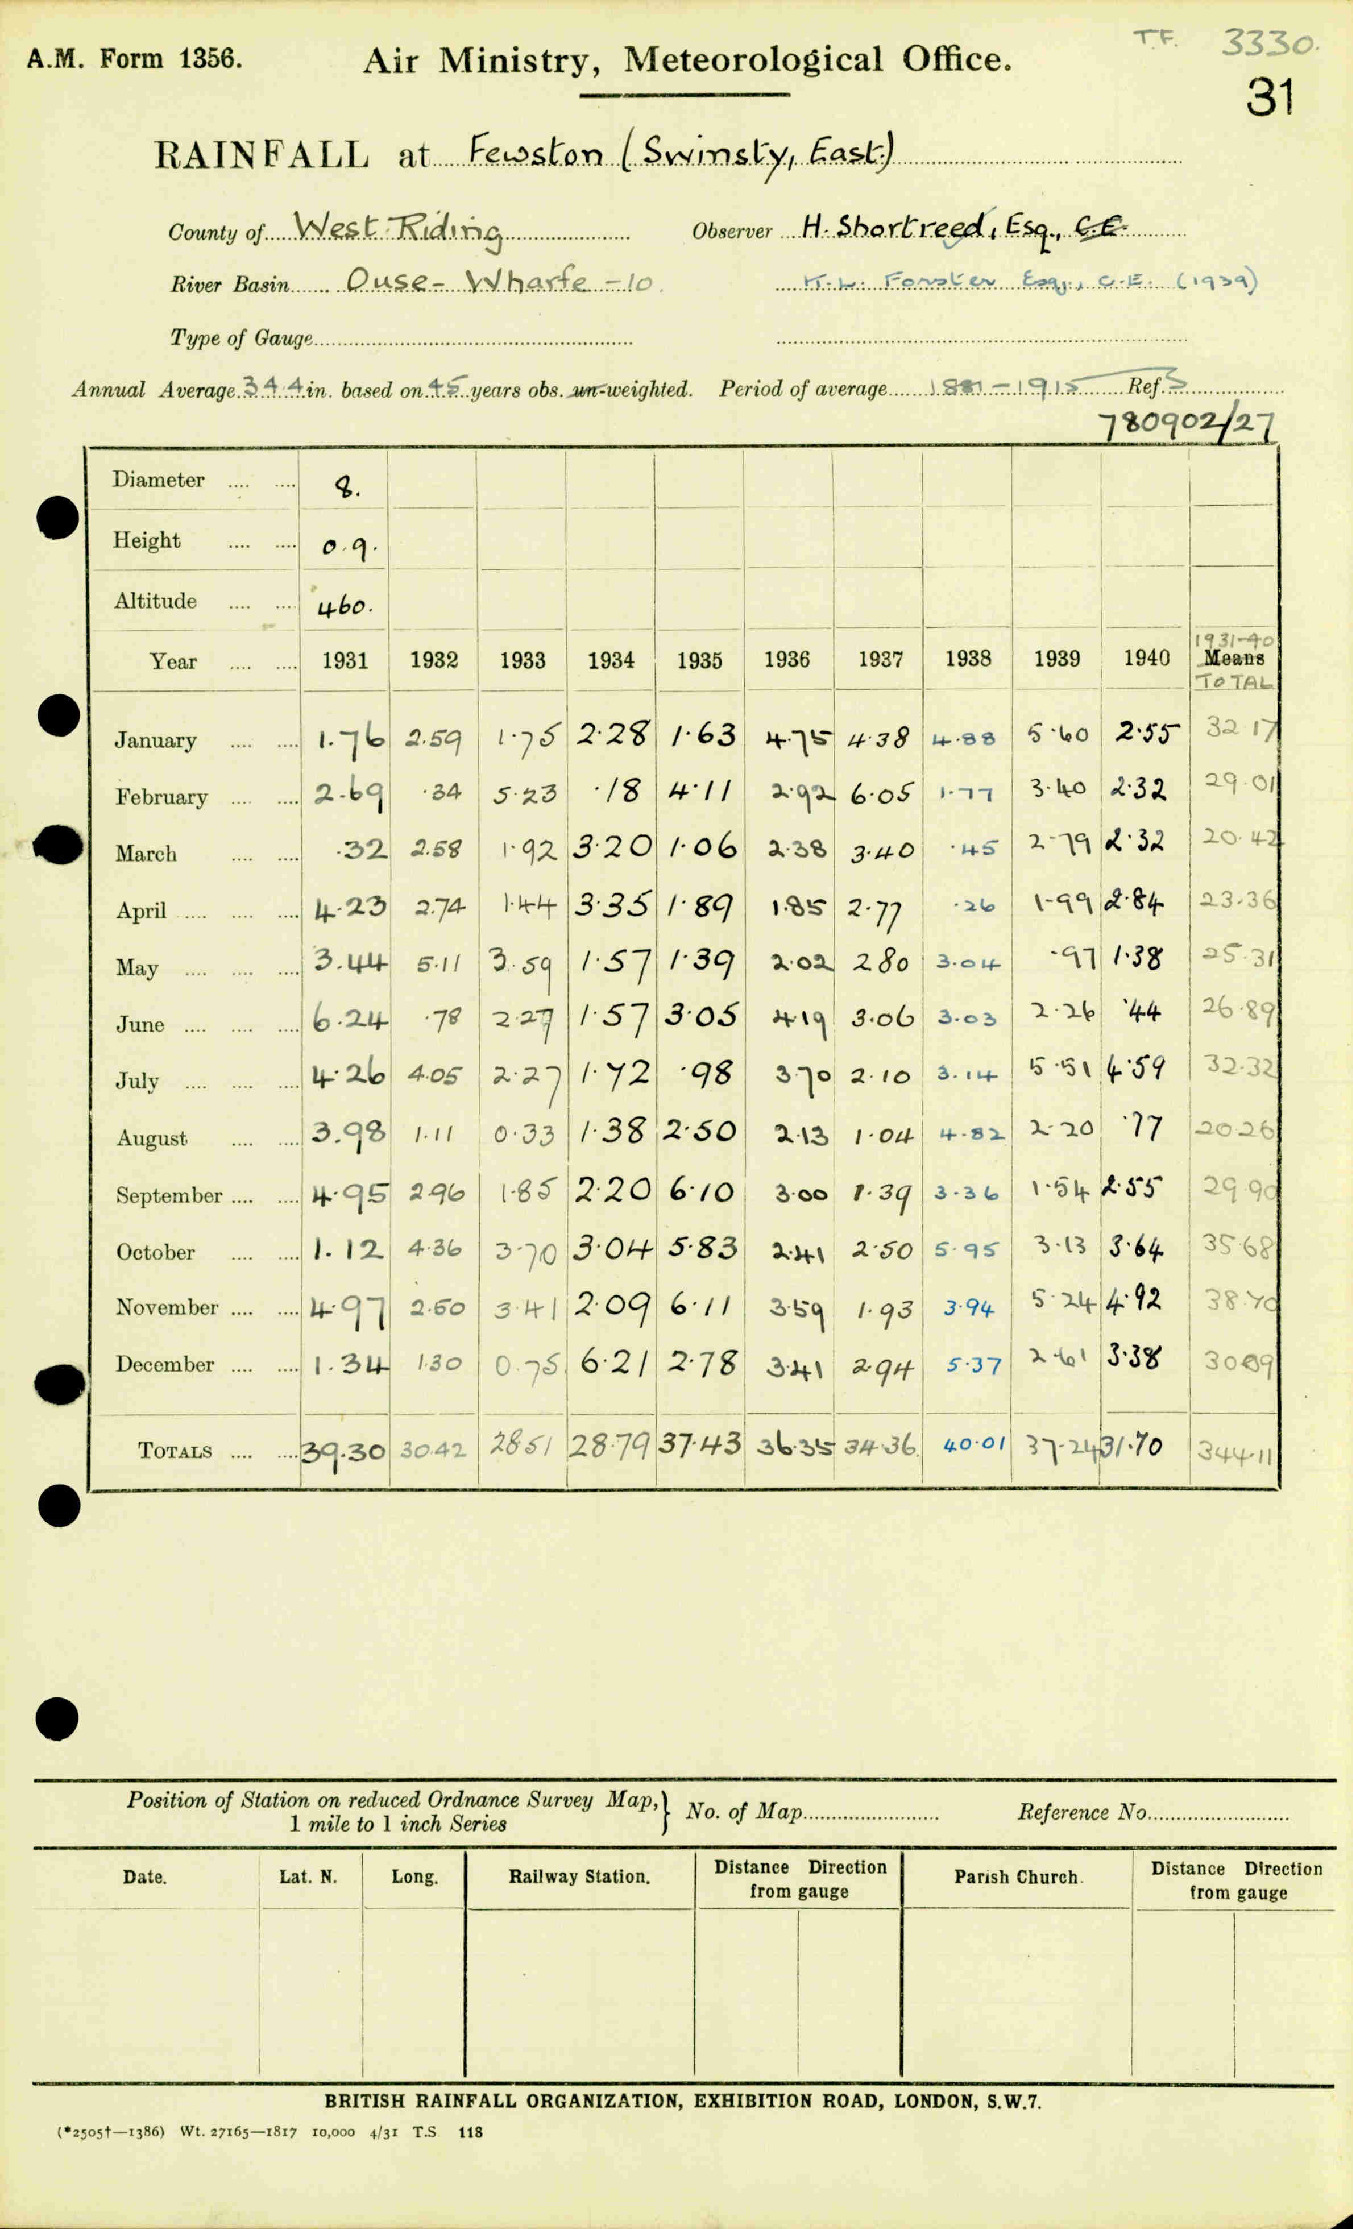 T.F. 3330.
A.M. Form 1356. Air Ministry, Meteorological Office.
31
RAINFALL at Fewston (Swinsty, East)
County of West Riding Observer H. Shortreed, Esq., C.E.
River Basin Ouse - Wharfe - 10. K.L. Forster Esq., C.E. (1939)
Type of Gauge
Annual Average 34.4 in. based on 45 years obs. un-weighted. Period of average 1881-1915 Ref. S
780902/27
Diameter 8.
Height 0.9.
Altitude 460.
1931-40
Year 1931 1932 1933 1934 1935 1936 1937 1938 1939 1940 Means
TOTAL
January 1.76 2.59 1.75 2.28 1.63 4.75 4.38 4.88 5.60 2.55 32.17
February 2.69 .34 5.23 .18 4.11 2.92 6.05 1.77 3.40 2.32 29.01
March .32 2.58 1.92 3.20 1.06 2.38 3.40 .45 2.79 2.32 20.42
April 4.23 2.74 1.44 3.35 1.89 1.85 2.77 .26 1.99 2.84 23.36
May 3.44 5.11 3.59 1.57 1.39 2.02 2.80 3.04 .97 1.38 25.31
June 6.24 .78 2.27 1.57 3.05 4.19 3.06 3.03 2.26 .44 26.89
July 4.26 4.05 2.27 1.72 .98 3.70 2.10 3.14 5.51 4.59 32.32
August 3.98 1.11 0.33 1.38 2.50 2.13 1.04 4.82 2.20 .77 20.26
September 4.95 2.96 1.85 2.20 6.10 3.00 1.39 3.36 1.54 2.55 29.90
October 1.12 4.36 3.70 3.04 5.83 2.41 2.50 5.95 3.13 3.64 35.68
November 4.97 2.50 3.41 2.09 6.11 3.59 1.93 3.94 5.24 4.92 38.70
December 1.34 1.30 0.75 6.21 2.78 3.41 2.94 5.37 2.61 3.38 30.09
TOTALS 39.30 30.42 28.51 28.79 37.43 36.35 34.36 40.01 37.24 31.70 344.11
Position of Station on reduced Ordnance Survey Map,} No. of Map Reference No.
1 mile to 1 inch Series
Date. Lat. N. Long. Railway Station. Distance Direction Parish Church. Distance Direction
from gauge from gauge
BRITISH RAINFALL ORGANIZATION, EXHIBITION ROAD, LONDON, S.W.7.
(*2505†—1386) Wt. 27165—1817 10,000 4/31 T.S 118